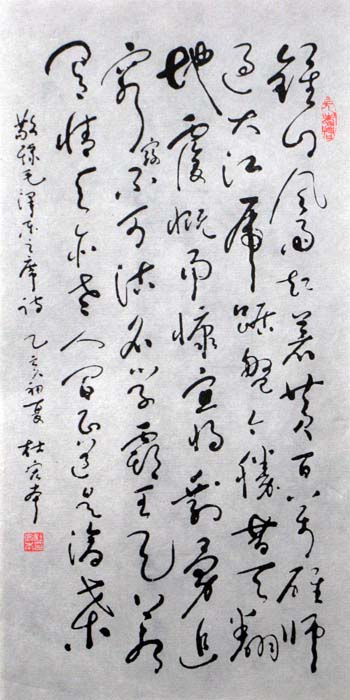 鍾山風雨起蒼黄百万雄师
過大江虎踞盤今勝昔天翻
地覆慨而慷宜将剩勇追
窮寇不可沽名学霸王天若
有情天亦老人间正道是滄桑
敬録毛泽东主席诗 乙亥初夏 杜宏本